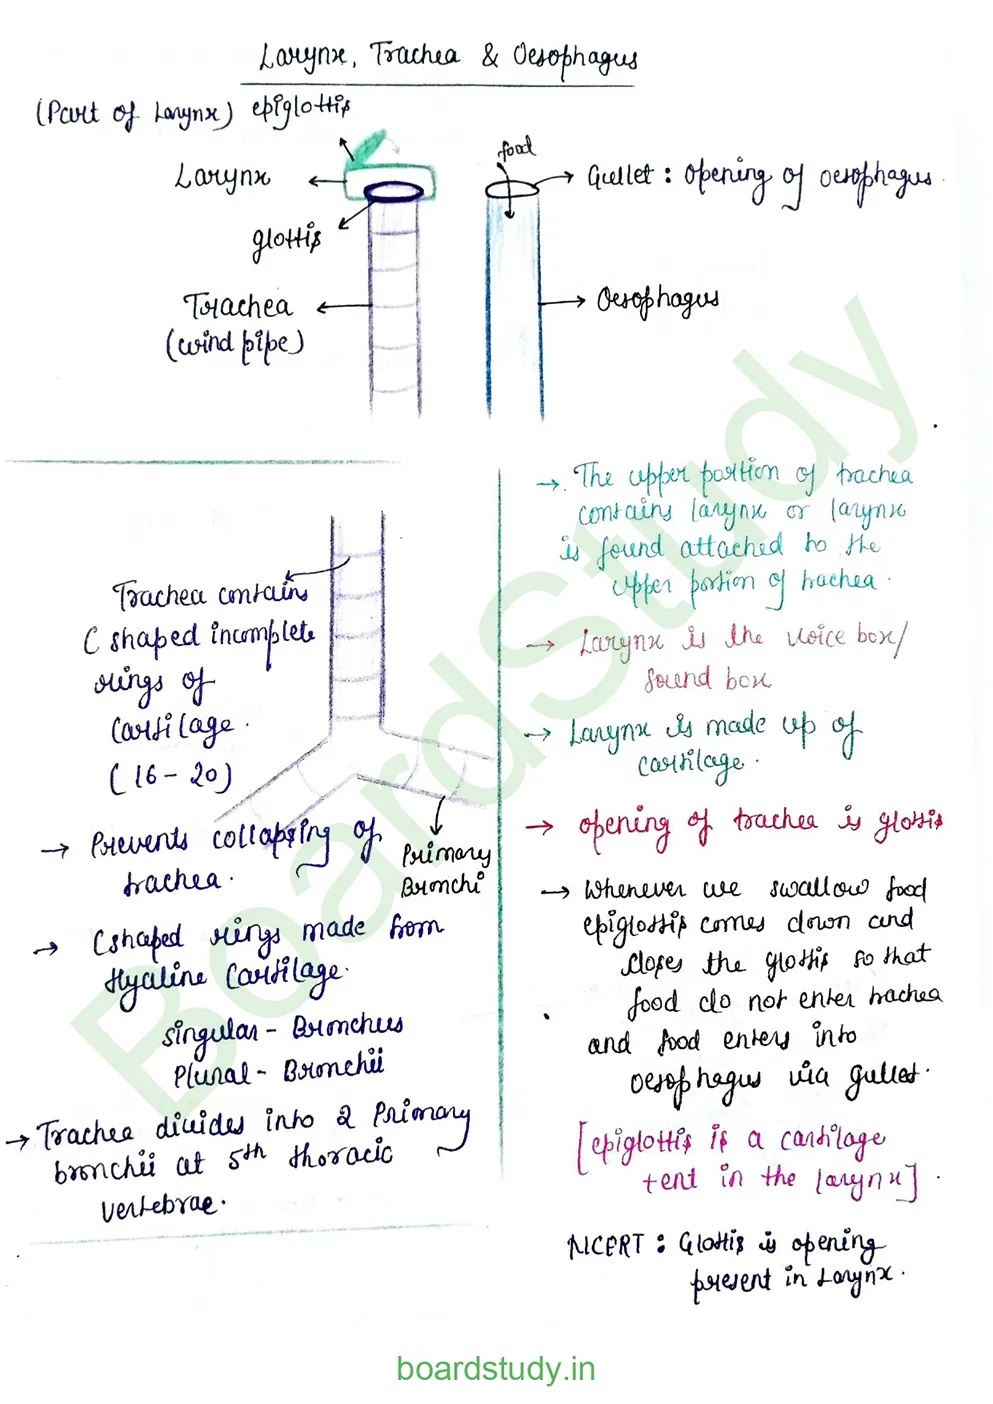 Larynx, Trachea & Oesophagus
(Part of Larynx) epiglottis
Larynx
glottis
Trachea
(wind pipe)
food
Gullet : opening of oesophagus.
Oesophagus
Trachea contains
C shaped incomplete
rings of
Cartilage.
(16 - 20)
Primary
Bronchi
→ Prevents collapsing of
trachea.
→ C shaped rings made from
Hyaline Cartilage.
Singular - Bronchus
Plural - Bronchii
→ Trachea divides into 2 Primary
bronchii at 5th thoracic
vertebrae.
→ The upper portion of trachea
contains larynx or larynx
is found attached to the
upper portion of trachea.
→ Larynx is the voice box/
sound box
→ Larynx is made up of
cartilage.
→ opening of trachea is glottis
→ Whenever we swallow food
epiglottis comes down and
closes the glottis so that
food do not enter trachea
and food enters into
oesophagus via gullet.
[epiglottis is a cartilage
tent in the larynx].
NCERT : Glottis is opening
present in Larynx.
BoardStudy
boardstudy.in